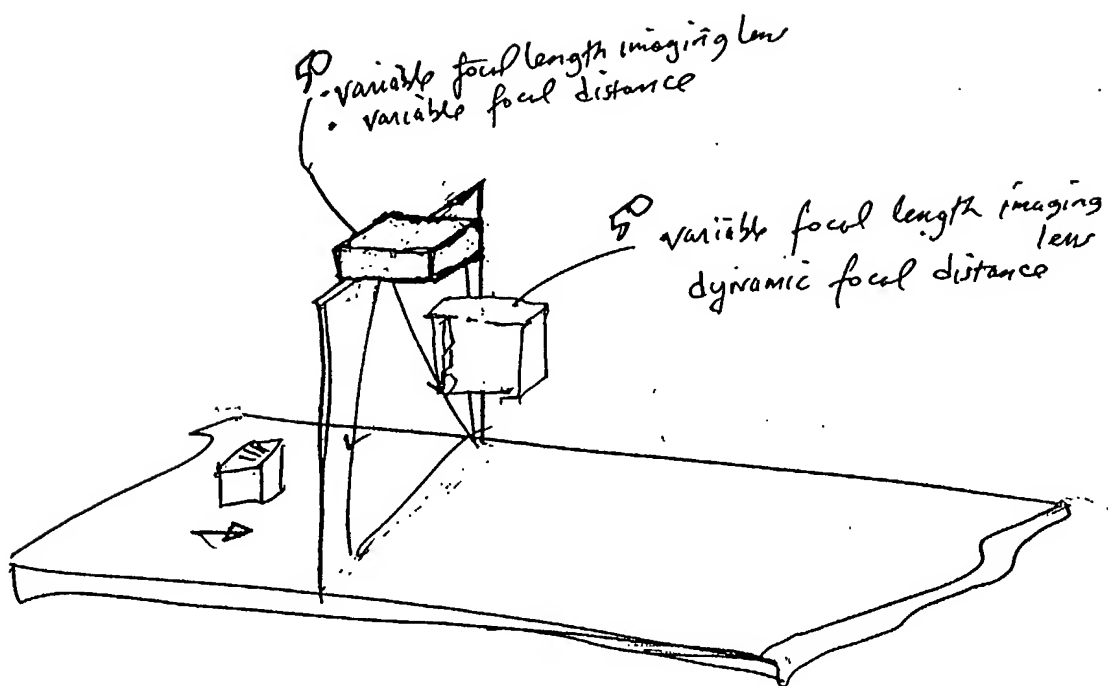 50
· variable focal length imaging lens
· variable focal distance
50
variable focal length imaging
lens
dynamic focal distance